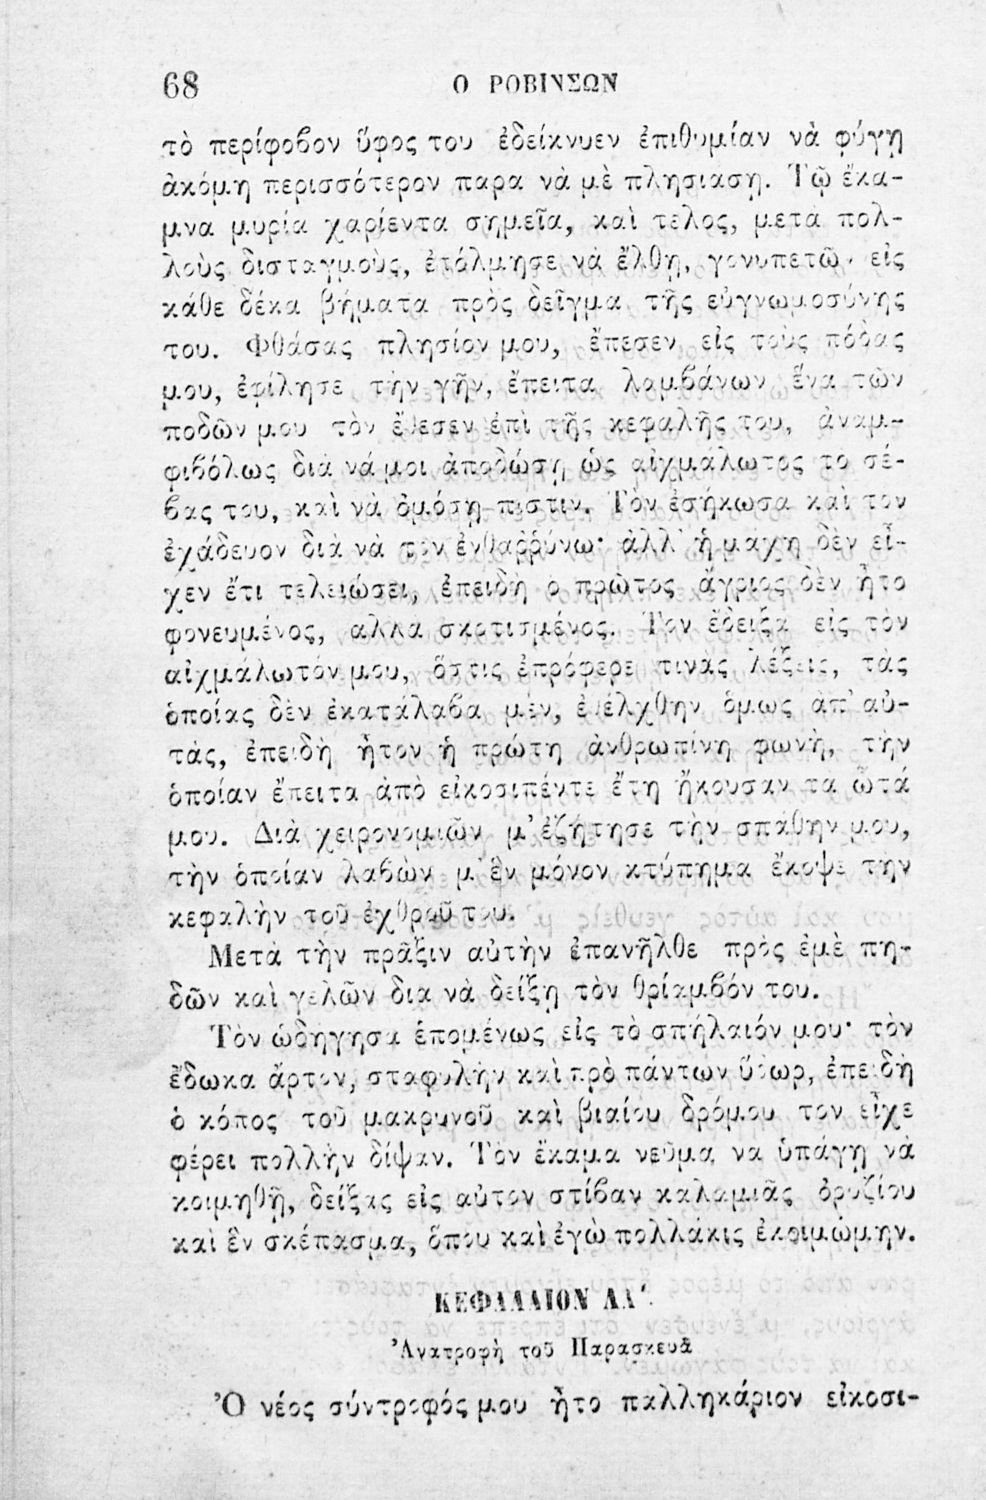 68 Ο ΡΟΒΙΝΣΩΝ
τὸ περίφοβον ὕφος του ἐδείκνυεν ἐπιθυμίαν νὰ φύγῃ
ἀκόμη περισσότερον παρα νὰ μὲ πλησιασῃ. Τῷ ἔκα-
μνα μυρία χαρίεντα σημεῖα, καὶ τελος, μετὰ πολ-
λοὺς δισταγμοὺς, ἐτόλμησε νὰ ἔλθῃ, γονυπετῶν εἰς
κάθε δέκα βήματα πρὸς δεῖγμα τῆς εὐγνωμοσύνης
του. Φθάσας πλησίον μου, ἔπεσεν εἰς τοὺς πόδας
μου, ἐφίλησε τὴν γῆν, ἔπειτα λαμβάνων ἕνα τῶν
ποδῶν μου τὸν ἔθεσεν ἐπὶ τῆς κεφαλῆς του, ἀναμ-
φιβόλως διὰ νά μοι ἀποδώσῃ ὡς αἰχμάλωτος τὸ σέ-
βας του, καὶ νὰ ὀμόσῃ πίστιν. Τὸν ἐσήκωσα καὶ τον
ἐχάδευον διὰ νὰ τὸν ἐνθαῤῥύνω· ἀλλ' ἡ μαχη δὲν εἶ-
χεν ἔτι τελειώσει, ἐπειδὴ ὁ πρῶτος ἄγριος δὲν ἦτο
φονευμένος, αλλα σκοτισμένος. Τον ἔδειξα εἰς τὸν
αἰχμάλωτόν μου, ὅστις ἐπρόφερε τινὰς λέξεις, τὰς
ὁποίας δὲν ἐκατάλαβα μὲν, ἐθέλχθην ὅμως ἀπ' αὐ-
τάς, ἐπειδὴ ἦτον ἡ πρώτη ἀνθρωπίνη φωνὴ, τὴν
ὁποίαν ἔπειτα ἀπὸ εἰκοσιπέντε ἔτη ἤκουσαν τα ὦτά
μου. Διὰ χειρονομιῶν μ' ἐζήτησε τὴν σπάθην μου,
τὴν ὁποίαν λαβὼν μ' ἓν μόνον κτύπημα ἔκοψε τὴν
κεφαλὴν τοῦ ἐχθροῦ του.
Μετὰ τὴν πρᾶξιν αὐτὴν ἐπανῆλθε πρὸς ἐμὲ πη-
δῶν καὶ γελῶν δια νὰ δείξῃ τὸν θρίαμβόν του.
Τὸν ὡδηγησα ἑπομένως εἰς τὸ σπήλαιόν μου· τὸν
ἔδωκα ἄρτον, σταφυλὴν καὶ πρὸ πάντων ὕδωρ, ἐπειδὴ
ὁ κόπος τοῦ μακρυνοῦ καὶ βιαίου δρόμου τον εἶχε
φέρει πολλὴν δίψαν. Τὸν ἔκαμα νεῦμα να ὑπάγῃ νὰ
κοιμηθῇ, δείξας εἰς αὐτον στίβαν καλαμιᾶς ὀρυζίου
καὶ ἓν σκέπασμα, ὅπου καὶ ἐγὼ πολλάκις ἐκοιμώμην.
ΚΕΦΑΛΑΙΟΝ ΛΑ'.
Ἀνατροφὴ τοῦ Παρασκευᾶ
Ὁ νέος σύντροφός μου ἦτο παλληκάριον εἰκοσι-